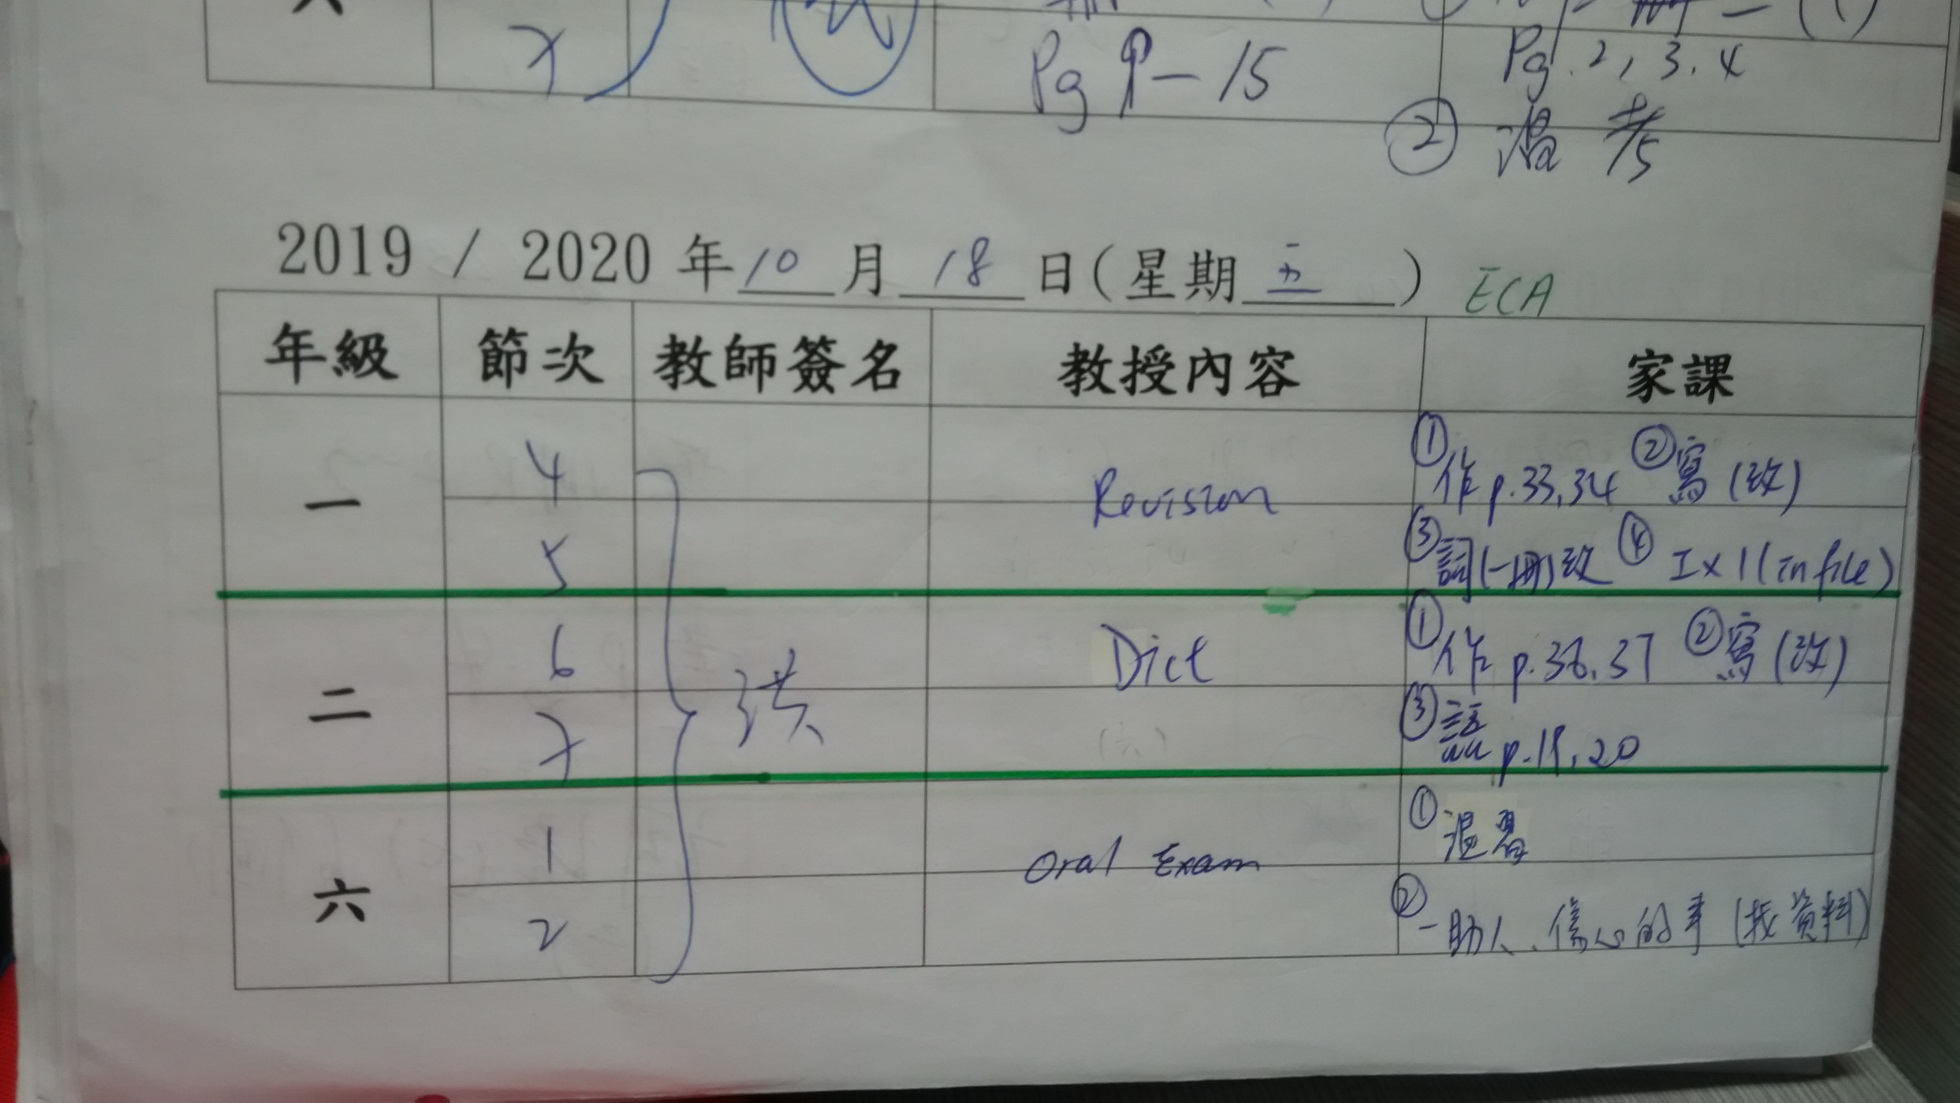 7
Pg 9-15
Pg.2,3.4
② 温書
2019 / 2020 年 10 月 18 日(星期 五 ) ECA
年級 節次 教師簽名 教授內容 家課
一 4 5 Revision
①作 p.33,34 ②寫(改)
③詞(一冊)改 ④ I×1(in file)
二 6 7 洪 Dict
①作 p.36,37 ②寫(改)
③ p.19,20
六 1 2 Oral Exam
①温習
②-助人、傷心的事(找資料)